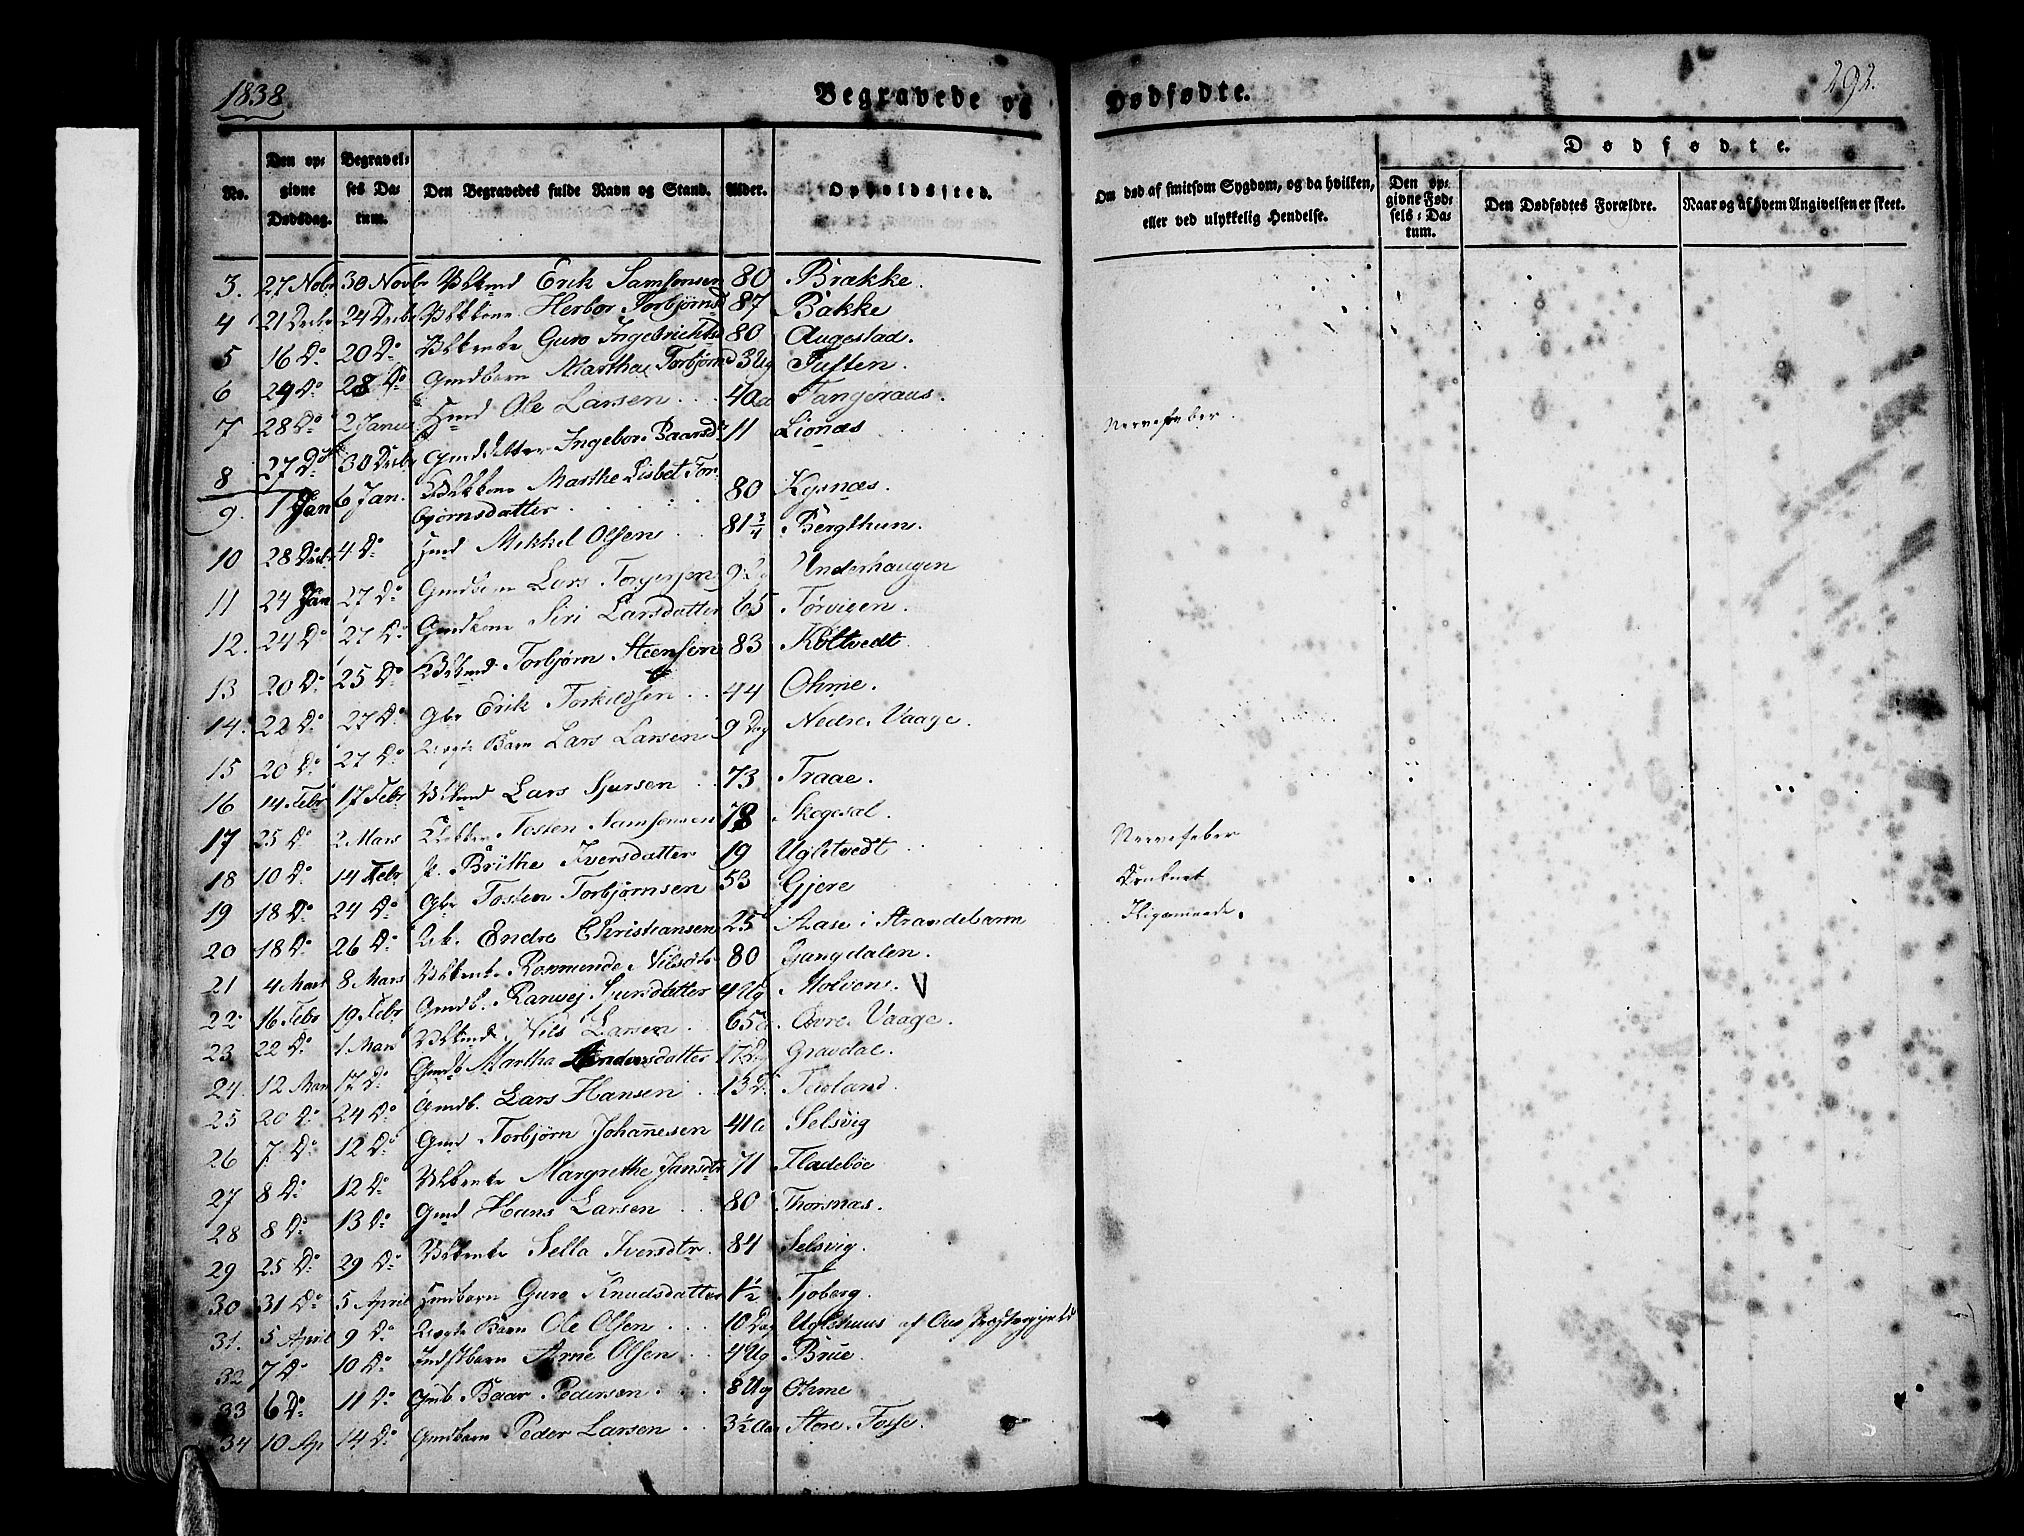 1838
Begravede og Dødfødte.
292.
No.
Den opgivne Dødsdag.
Begravelses Datum.
Den Begravedes fulde Navn og Stand.
Alder.
Opholdssted.
Om død af smitsom Sygdom, og da hvilken, eller ved ulykkelig Hendelse.
Dødfødte.
Den opgivne Fødsels-Datum.
Den Dødfødtes Forældre.
Naar og af hvem Angivelsen er skeet.
3. 27 Nobr 30 Novbr Erik Samsonsen 80 Brække.
4 21 Decbr 24 Decbr Herbor Torbjørnsd 87 Bakke
5 16 Do 20 Do Guro Ingebrichtsd 80 Augestad.
6 24 Do 28 Do Gmdbarn Martha Torbjørnsd 3 Ug Tuften.
7 28 Do 2 Januar Ole Larsen 40 a Tangeraas.
8 27 Do 30 Decbr Gmddatter Ingebor Baarsdr 11 Lionæs
9. 1 Jan 6 Jan. Marthe Lisbet Tor-
bjørnsdatter 80 Kysnæs.
10 28 Decbr 4 Do Mikkel Olsen 81 3/4 Bergthun.
11 24 Jan 27 Do Lars Torgersen Underhaugen
12. 24 Do 27 Do Gmdkone Siri Larsdatter 65 Tørvigen.
13 20 Do 25 Do Torbjørn Steensen 83 Koltvedt
14. 22 Do 27 Do Gbr Erik Torkildsen 44 Ohme.
15 20 Do 27 Do Uegte Barn Lars Larsen 9 Dag Nedre Vaage.
16 14 Febr 17 Febr Lars Sjursen 73 Traae.
17 25 Do 2 Mars Tosten Samsonsen 78 Skogesal
18 10 Do 14 Febr P. Brithe Iversdatter 19 Ugletvedt Nervefeber
19 18 Do 24 Do Gbr Tosten Torbjørnsen 53 Gjere Druknet
20 18 Do 26 Do Endre Christiansen 25 Aase i Strandebarm
21 4 Mart 8 Mars Rosmunde Nilsdtr 80 Gangdalen.
22 16 Febr 19 Febr Gmdb. Ranvej Sjursdatter 4 Ug Molven. V
23 22 Do 1 Mars Nils Larsen 65 a Øvre Vaage.
24. 12 Mars 17 Do Gmdb Martha Andersdatter Gravdal.
25 20 Do 24 Do Gmdb. Lars Hansen 13 D. Tveland.
26 7 Do 12 Do Gmd Torbjørn Johannesen 41 a Selsvig
27 8 Do 12 Do Margrethe Jansdtr 71 Fladebøe
28 8 Do 13 Do Gmd Hans Larsen 80 Thorsnæs.
29 25 Do 29 Do Sella Iversdtr. 84 Selsvig.
30 31 Do 5 April Guro Knudsdatter 1 1/2 Fjoberg.
31. 5 April 9 Do Uegte Barn Ole Olsen 10 Dag Uglehuus af Ous Præstegjeld
32 7 Do 10 Do Indstbarn Arne Olsen 4 Ug Brue.
33 6 Do 11 Do Gmb. Baar Pedersen 8 Ug Ohme
34 10 Ap 14 Do Gmdbarn Peder Larsen 3 1/2 Aar Store Fosse.
Nervefeber